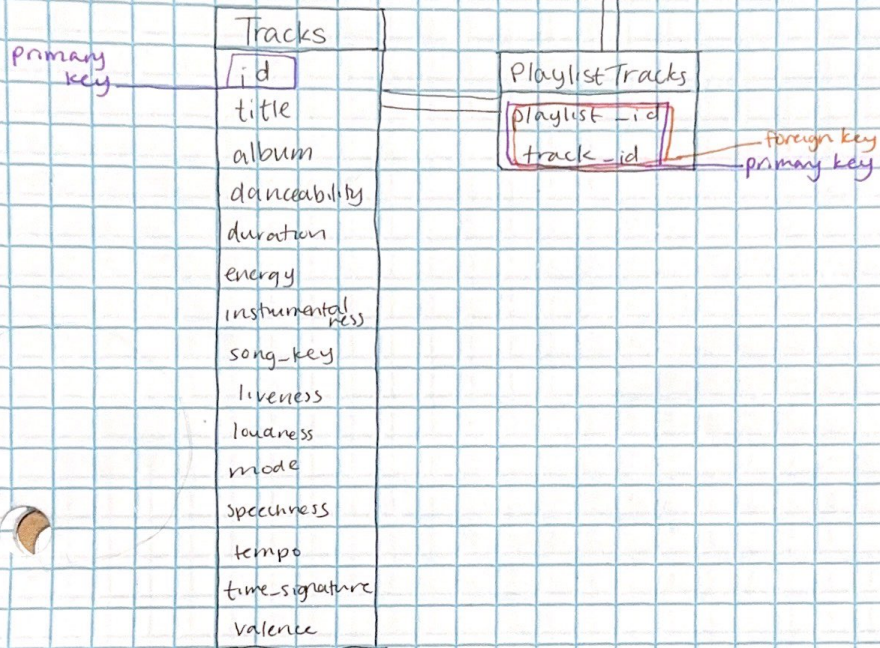 Tracks
primary
key
id
title
album
danceability
duration
energy
instrumental
ness
song_key
liveness
loudness
mode
speechness
tempo
time_signature
valence
PlaylistTracks
playlist_id
track_id
foreign key
primary key